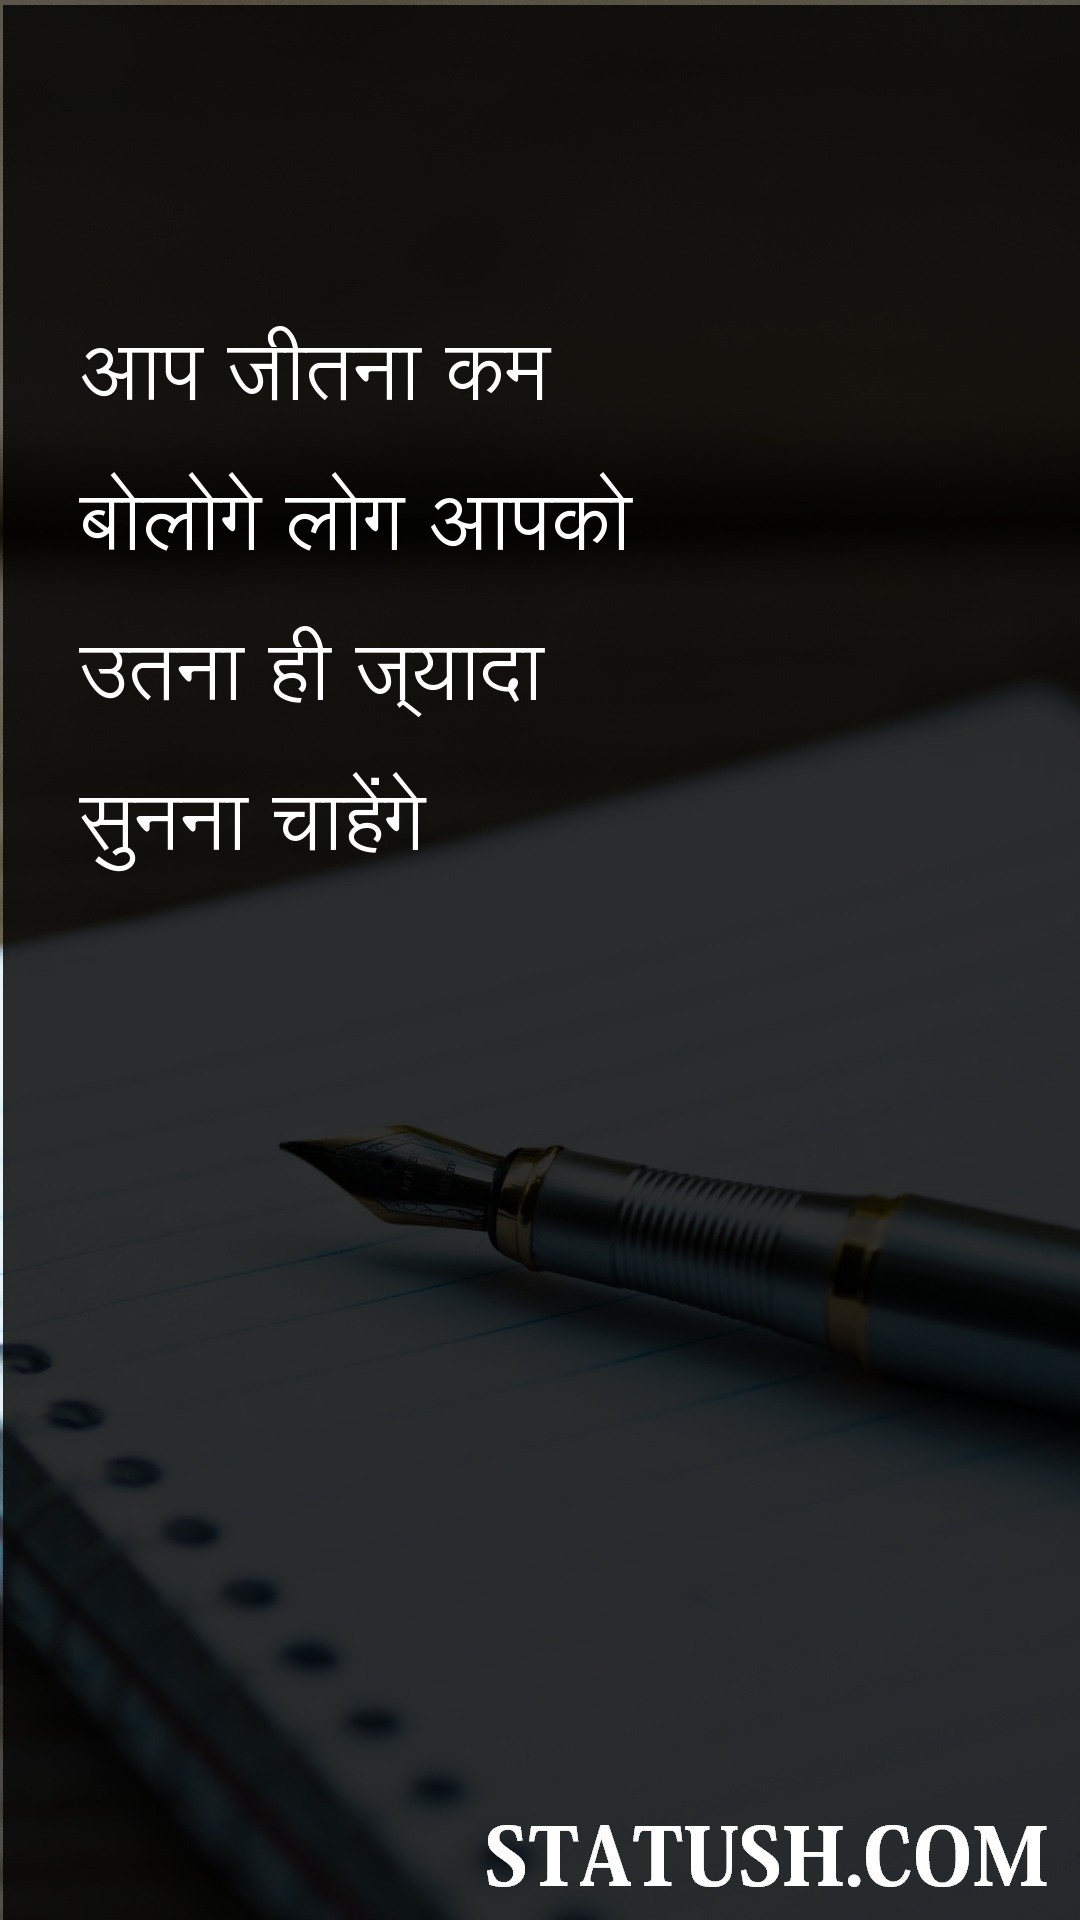 आप जीतना कम
बोलोगे लोग आपको
उतना ही ज्‌यादा
सुनना चाहेंगे
STATUSH.COM